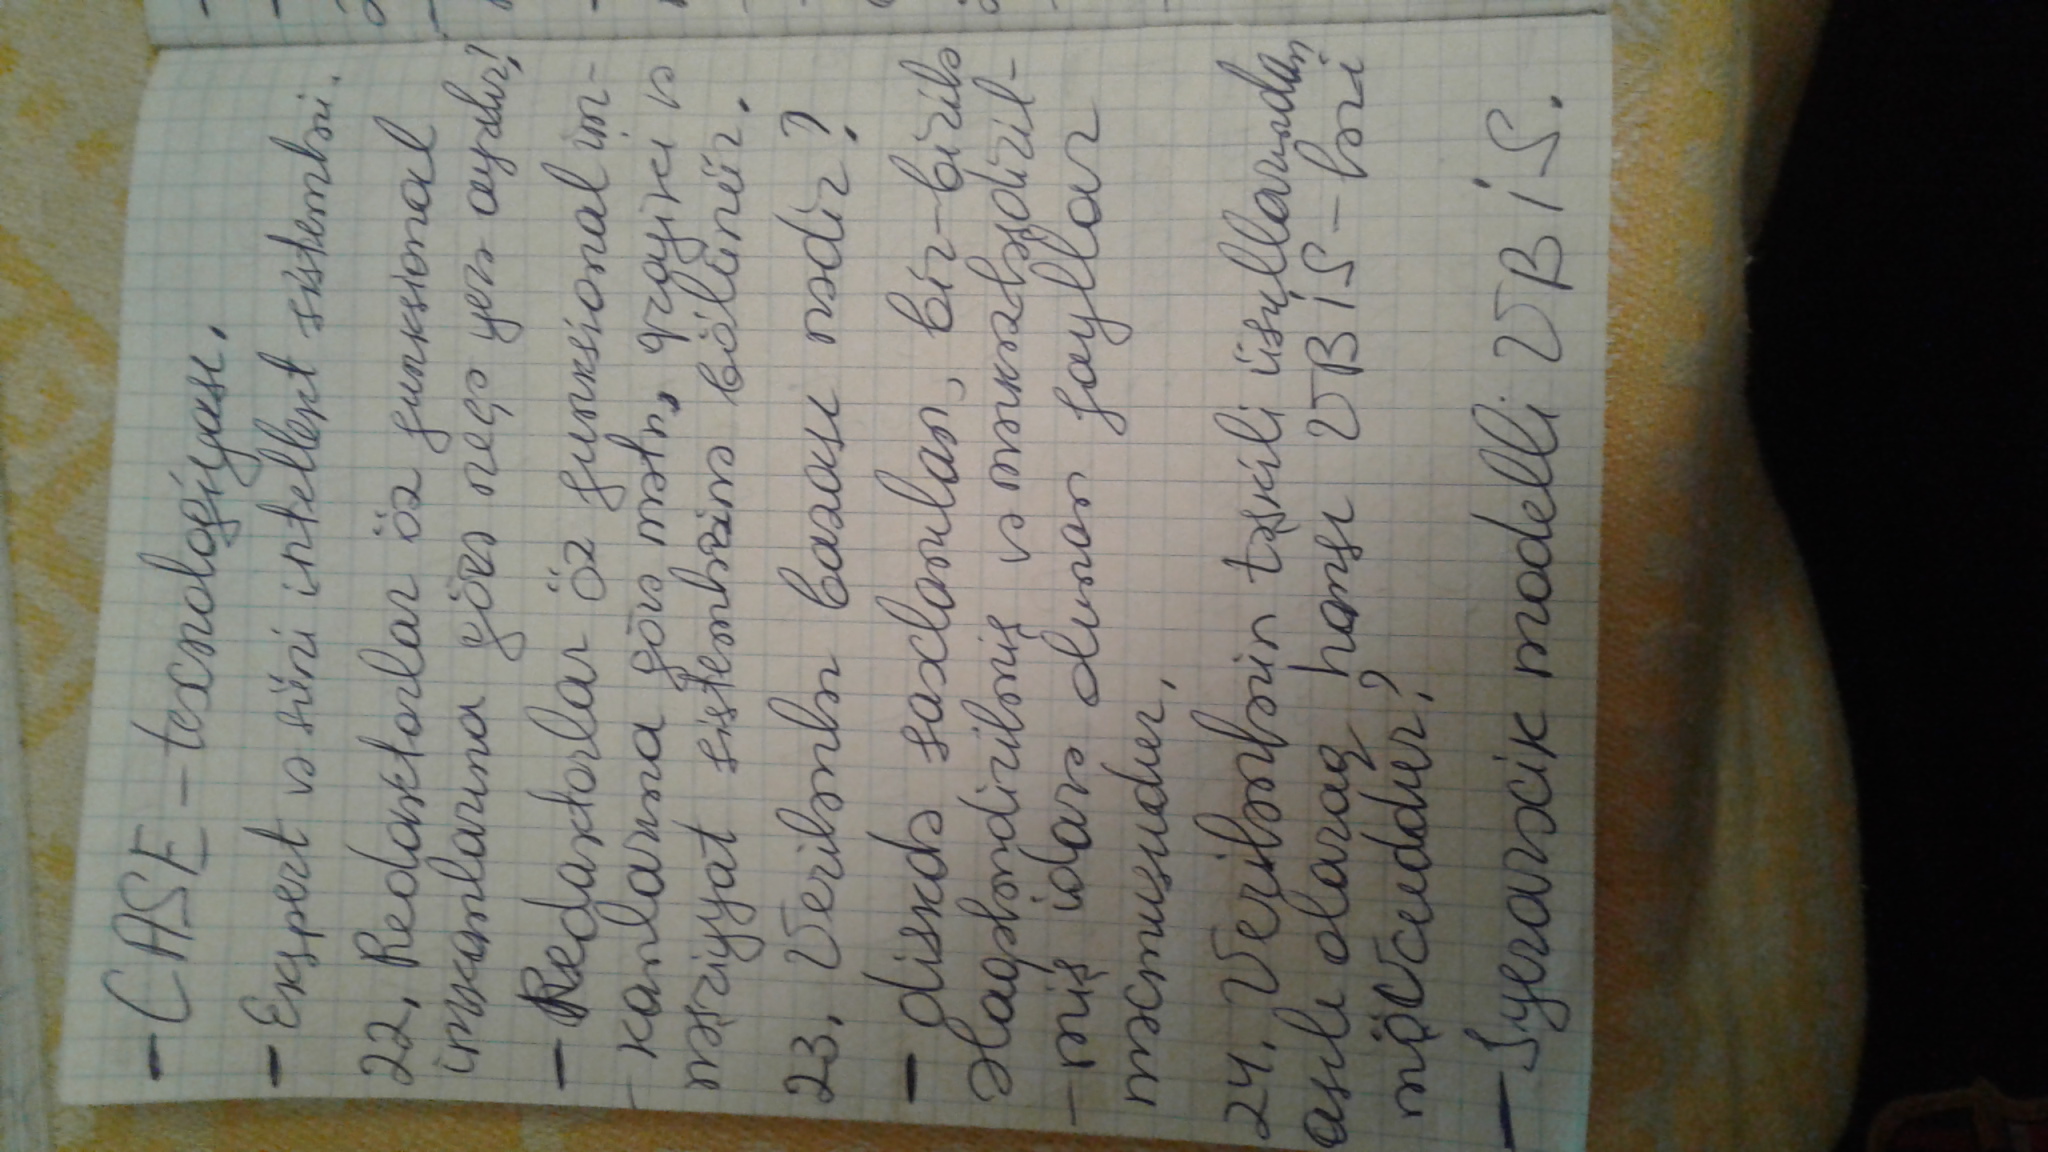 - CASE - texnologiyası.
- Ekspert və süni intellekt sistemləri.
22. Redaktorlar öz funksional
imkanlarına görə neçə yerə ayrılır?
- Redaktorlar öz funksional im-
- kanlarına görə mətn, qrafiki və
nəşriyyat sistemlərinə bölünür.
23. Verilənlər bazası nədir?
- diskdə saxlanılan, bir-birilə
əlaqələndirilmiş və mərkəzləşdiril-
- miş idarə olunan fayllar
məcmusudur,
24. Verilənlərin təşkili üsullarından
asılı olaraq hansı VBİS-ləri
mövcuddur?
- İyerarxik modelli VBİS.